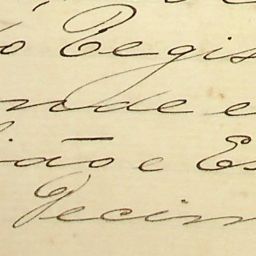 o Regis
nde e
lião e Es
Decim